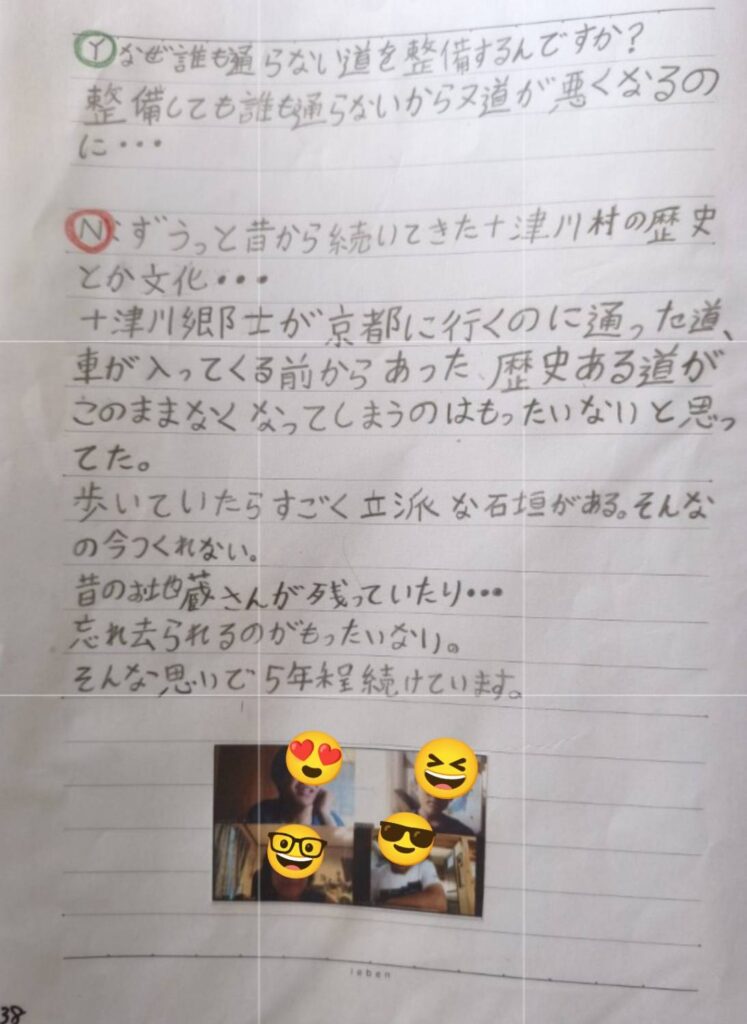 Ⓨなぜ誰も通らない道を整備するんですか?
整備しても誰も通らないから又道が悪くなるの
に・・・
Ⓝずうっと昔から続いてきた十津川村の歴史
とか文化・・・
十津川郷士が京都に行くのに通った道、
車が入ってくる前からあった、歴史ある道が
このままなくなってしまうのはもったいないと思っ
てた。
歩いていたらすごく立派な石垣がある。そんな
の今つくれない。
昔のお地蔵さんが残っていたり・・・
忘れ去られるのがもったいない。
そんな思いで5年程続けています。
leben
38